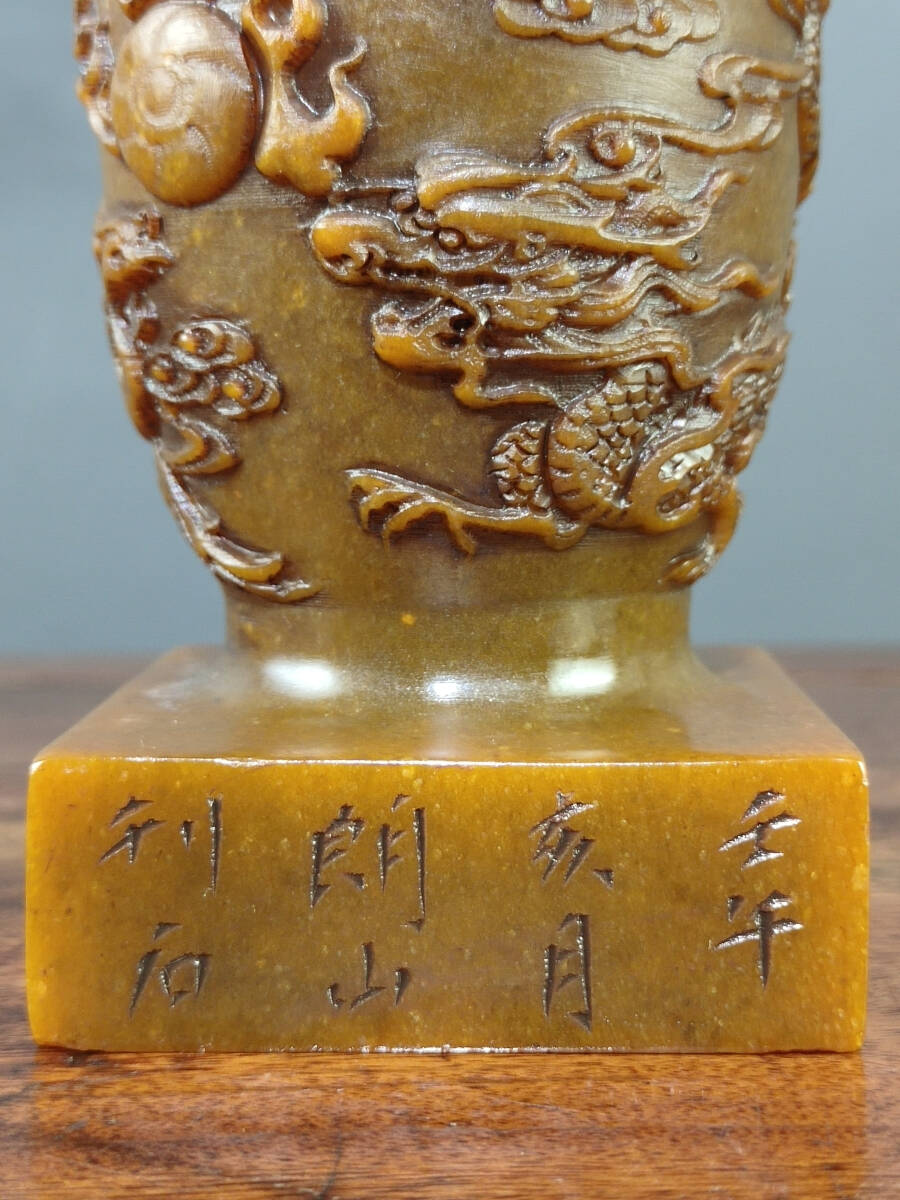 壬午
亥月
朗山
刊石